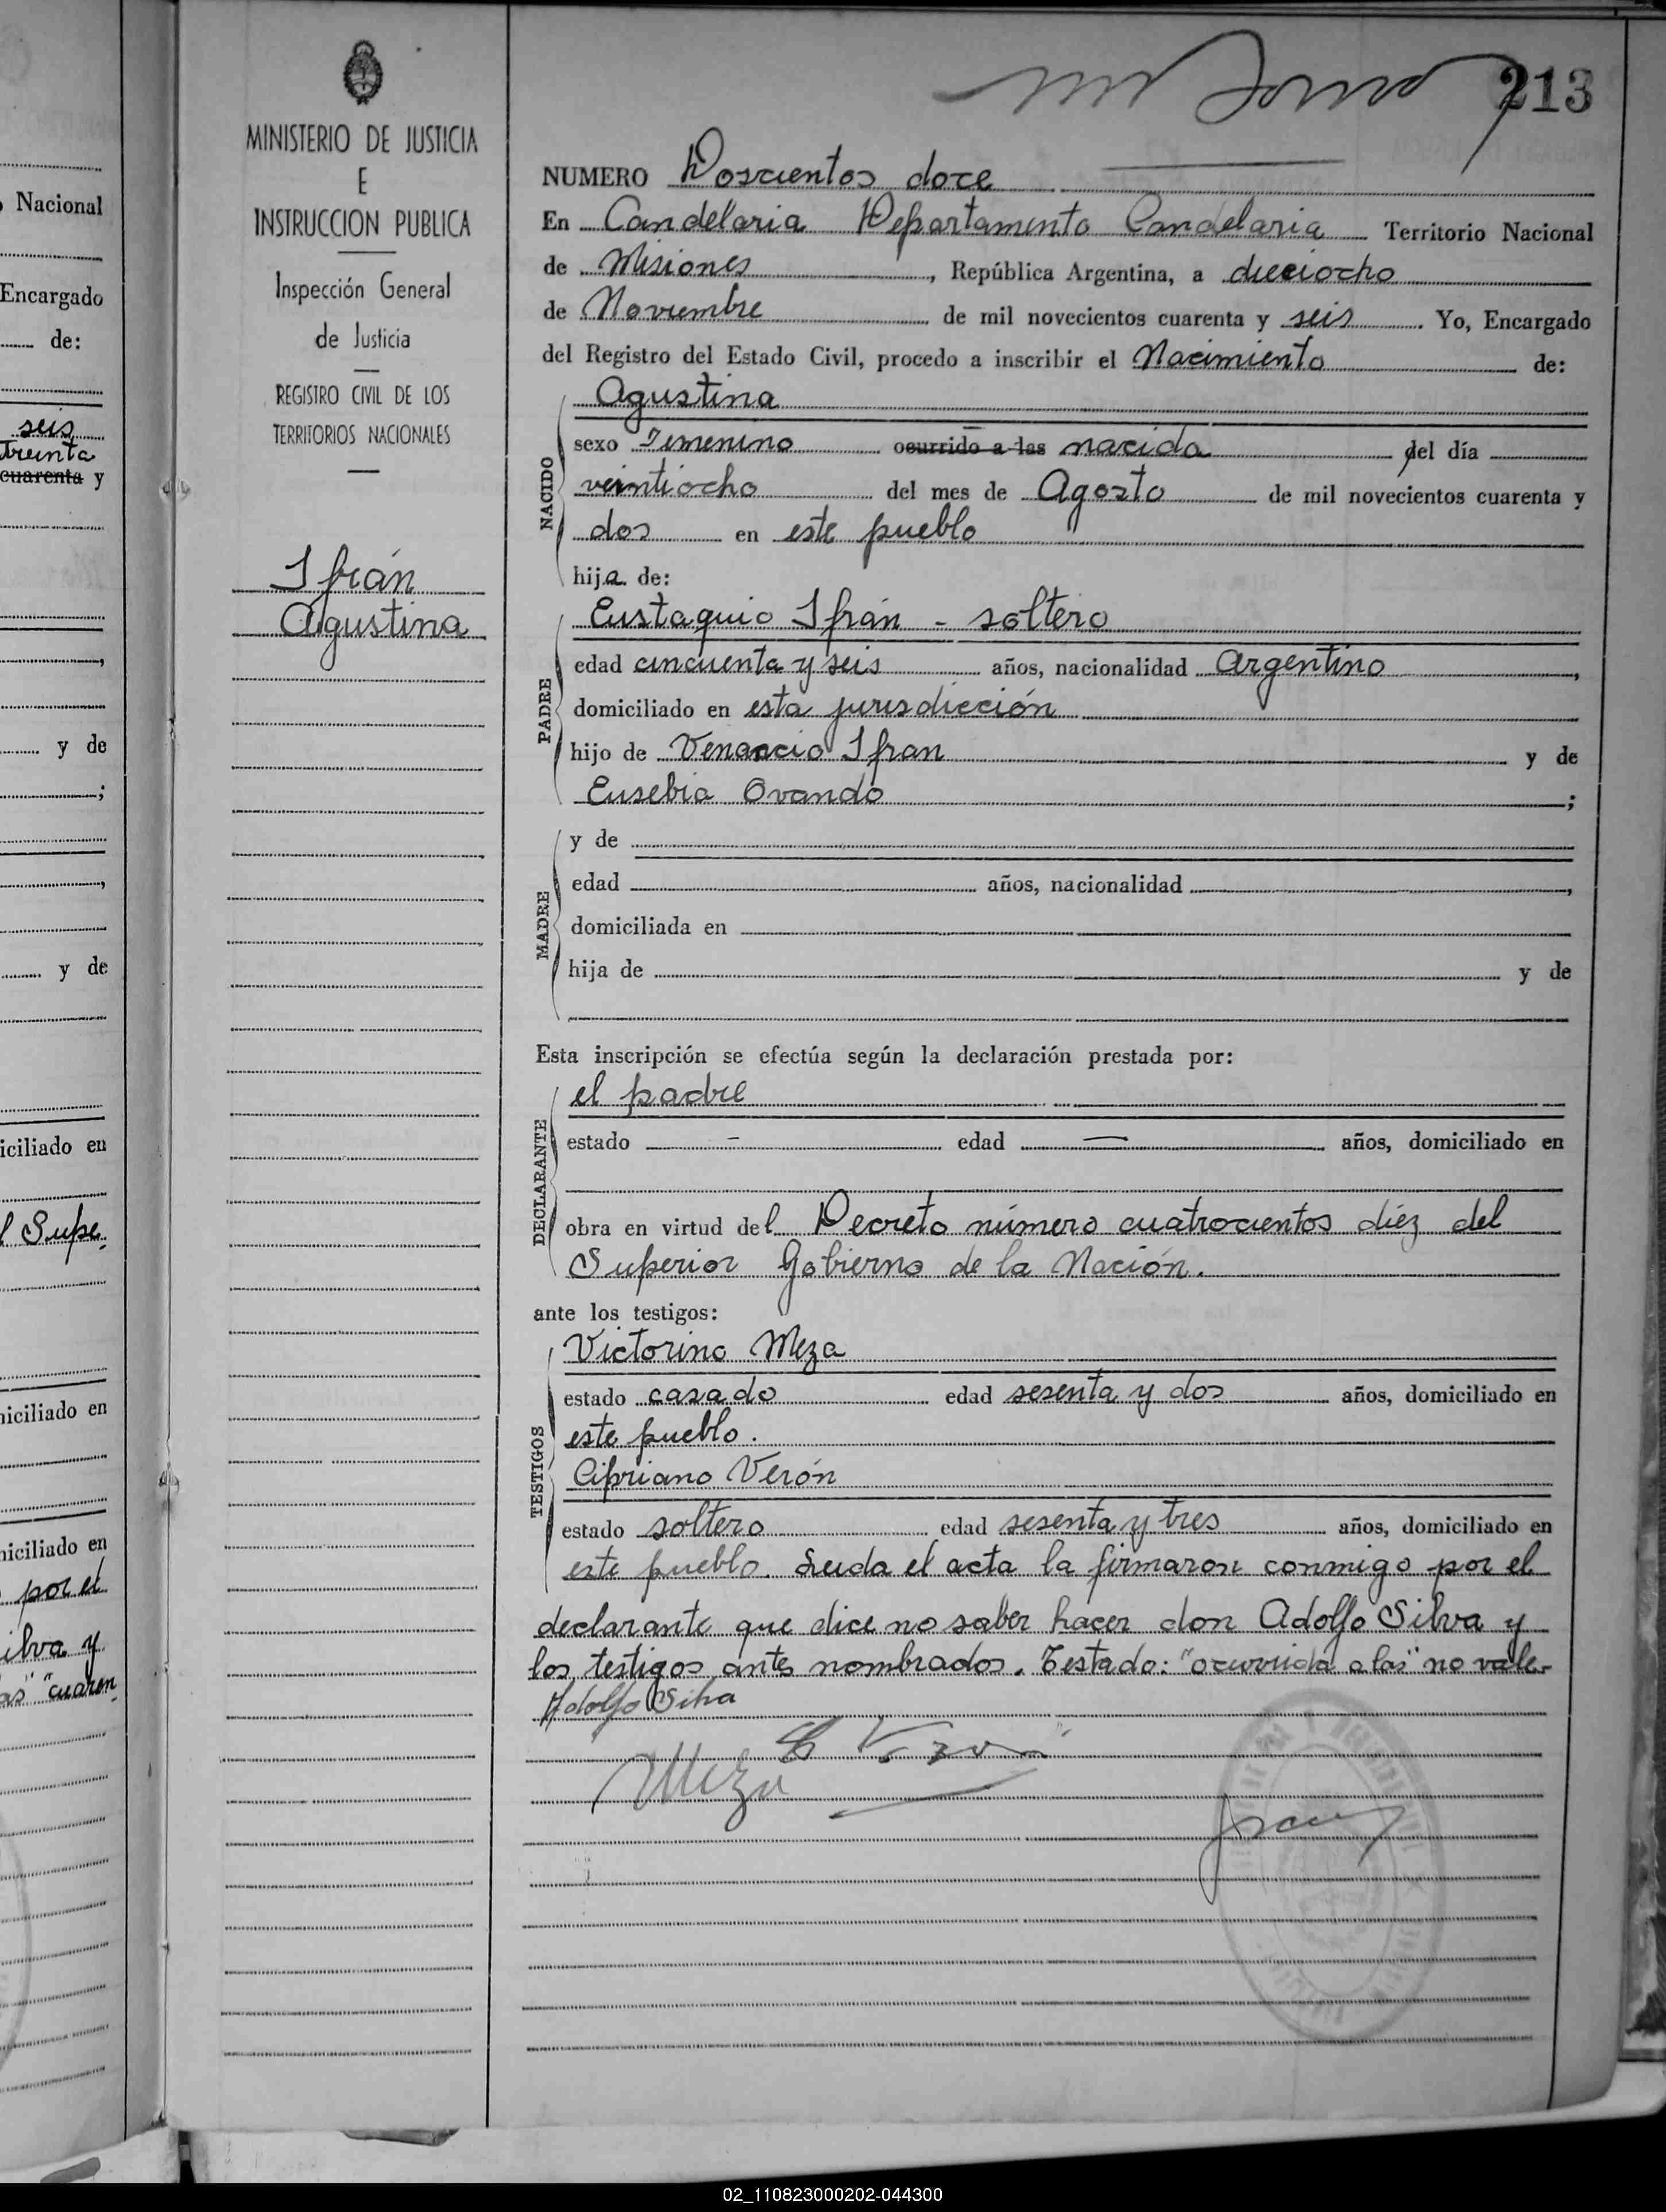 Nacional
Encargado
de:
seis
treinta
cuarenta y
y de
;
y de
iciliado en
l Supe.
niciliado en
niciliado en
por el
ilva y
as" "cuaren
MINISTERIO DE JUSTICIA
E
INSTRUCCION PUBLICA
Inspección General
de Justicia
REGISTRO CIVIL DE LOS
TERRITORIOS NACIONALES
Ifrán
Agustina
213
NUMERO Doscientos doce
En Candelaria Departamento Candelaria Territorio Nacional
de Misiones, República Argentina, a dieciocho
de Noviembre de mil novecientos cuarenta y seis. Yo, Encargado
del Registro del Estado Civil, procedo a inscribir el Nacimiento de:
Agustina
NACIDO
sexo Femenino ocurrido a las nacida del día
veintiocho del mes de Agosto de mil novecientos cuarenta y
dos en este pueblo
hija de:
PADRE
Eustaquio Ifrán - soltero
edad cincuenta y seis años, nacionalidad Argentino,
domiciliado en esta jurisdicción
hijo de Venancio Ifran y de
Eusebia Ovando;
MADRE
y de
edad años, nacionalidad,
domiciliada en
hija de y de
Esta inscripción se efectúa según la declaración prestada por:
DECLARANTE
el padre
estado - edad — años, domiciliado en
obra en virtud del Decreto número cuatrocientos diéz del
Superior Gobierno de la Nación.
ante los testigos:
TESTIGOS
Victorino Meza
estado casado edad sesenta y dos años, domiciliado en
este pueblo.
Cipriano Verón
estado soltero edad sesenta y tres años, domiciliado en
este pueblo. Leida el acta la firmaron conmigo por el
declarante que dice no saber hacer don Adolfo Silva y
los testigos antes nombrados. Testado: "ocurrida a las" no vale-
Adolfo Silva
C Veron
Meza
02_110823000202-044300